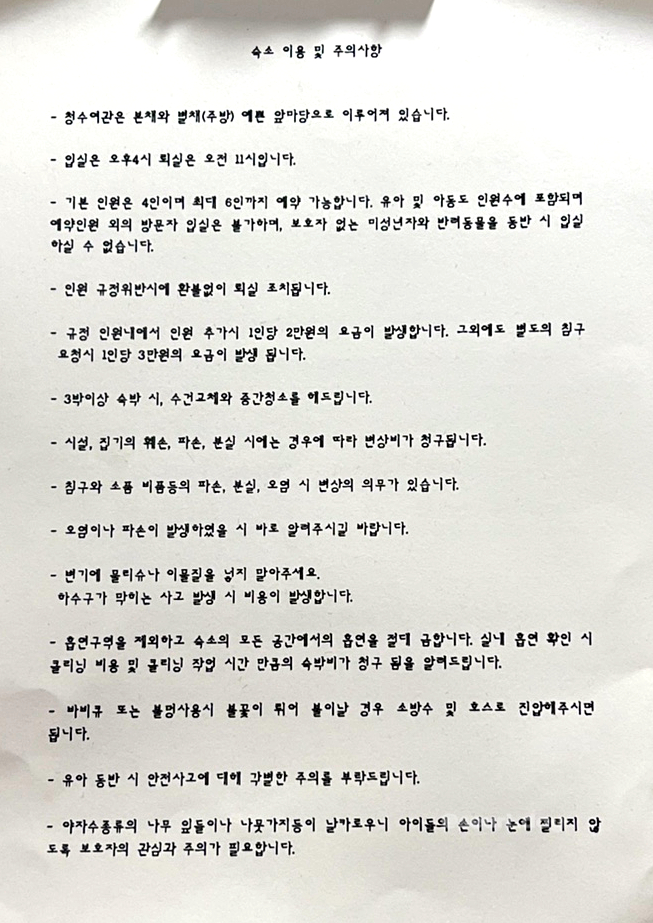 숙소 이용 및 주의사항
- 청수여관은 본채와 별채(주방) 예쁜 앞마당으로 이루어져 있습니다.
- 입실은 오후4시 퇴실은 오전 11시입니다.
- 기본 인원은 4인이며 최대 6인까지 예약 가능합니다. 유아 및 아동도 인원수에 포함되며
예약인원 외의 방문자 입실은 불가하며, 보호자 없는 미성년자와 반려동물을 동반 시 입실
하실 수 없습니다.
- 인원 규정위반시에 환불없이 퇴실 조치됩니다.
- 규정 인원내에서 인원 추가시 1인당 2만원의 요금이 발생합니다. 그외에도 별도의 침구
요청시 1인당 3만원의 요금이 발생 됩니다.
- 3박이상 숙박 시, 수건교체와 중간청소를 해드립니다.
- 시설, 집기의 훼손, 파손, 분실 시에는 경우에 따라 변상비가 청구됩니다.
- 침구와 소품 비품등의 파손, 분실, 오염 시 변상의 의무가 있습니다.
- 오염이나 파손이 발생하였을 시 바로 알려주시길 바랍니다.
- 변기에 물티슈나 이물질을 넣지 말아주세요.
하수구가 막히는 사고 발생 시 비용이 발생합니다.
- 흡연구역을 제외하고 숙소의 모든 공간에서의 흡연을 절대 금합니다. 실내 흡연 확인 시
클리닝 비용 및 클리닝 작업 시간 만큼의 숙박비가 청구 됨을 알려드립니다.
- 바비큐 또는 불멍사용시 불꽃이 튀어 불이날 경우 소방수 및 호스로 진압해주시면
됩니다.
- 유아 동반 시 안전사고에 대해 각별한 주의를 부탁드립니다.
- 야자수종류의 나무 잎들이나 나뭇가지등이 날카로우니 아이들의 손이나 눈에 찔리지 않
도록 보호자의 관심과 주의가 필요합니다.